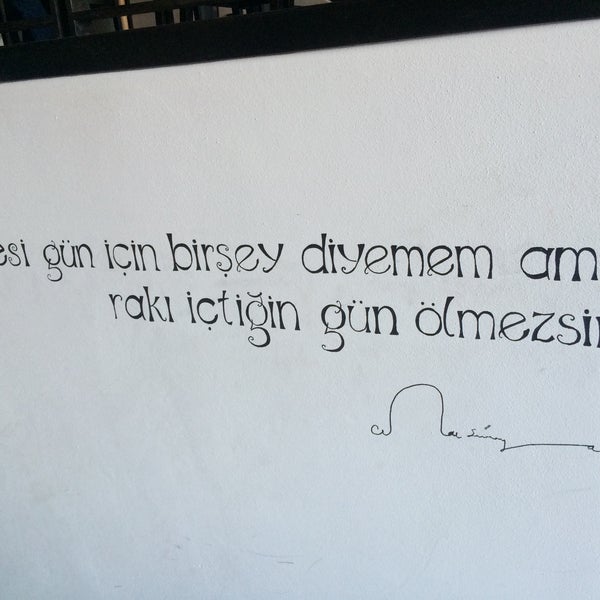 esi gün için birşey diyemem am
rakı içtiğin gün ölmezsin